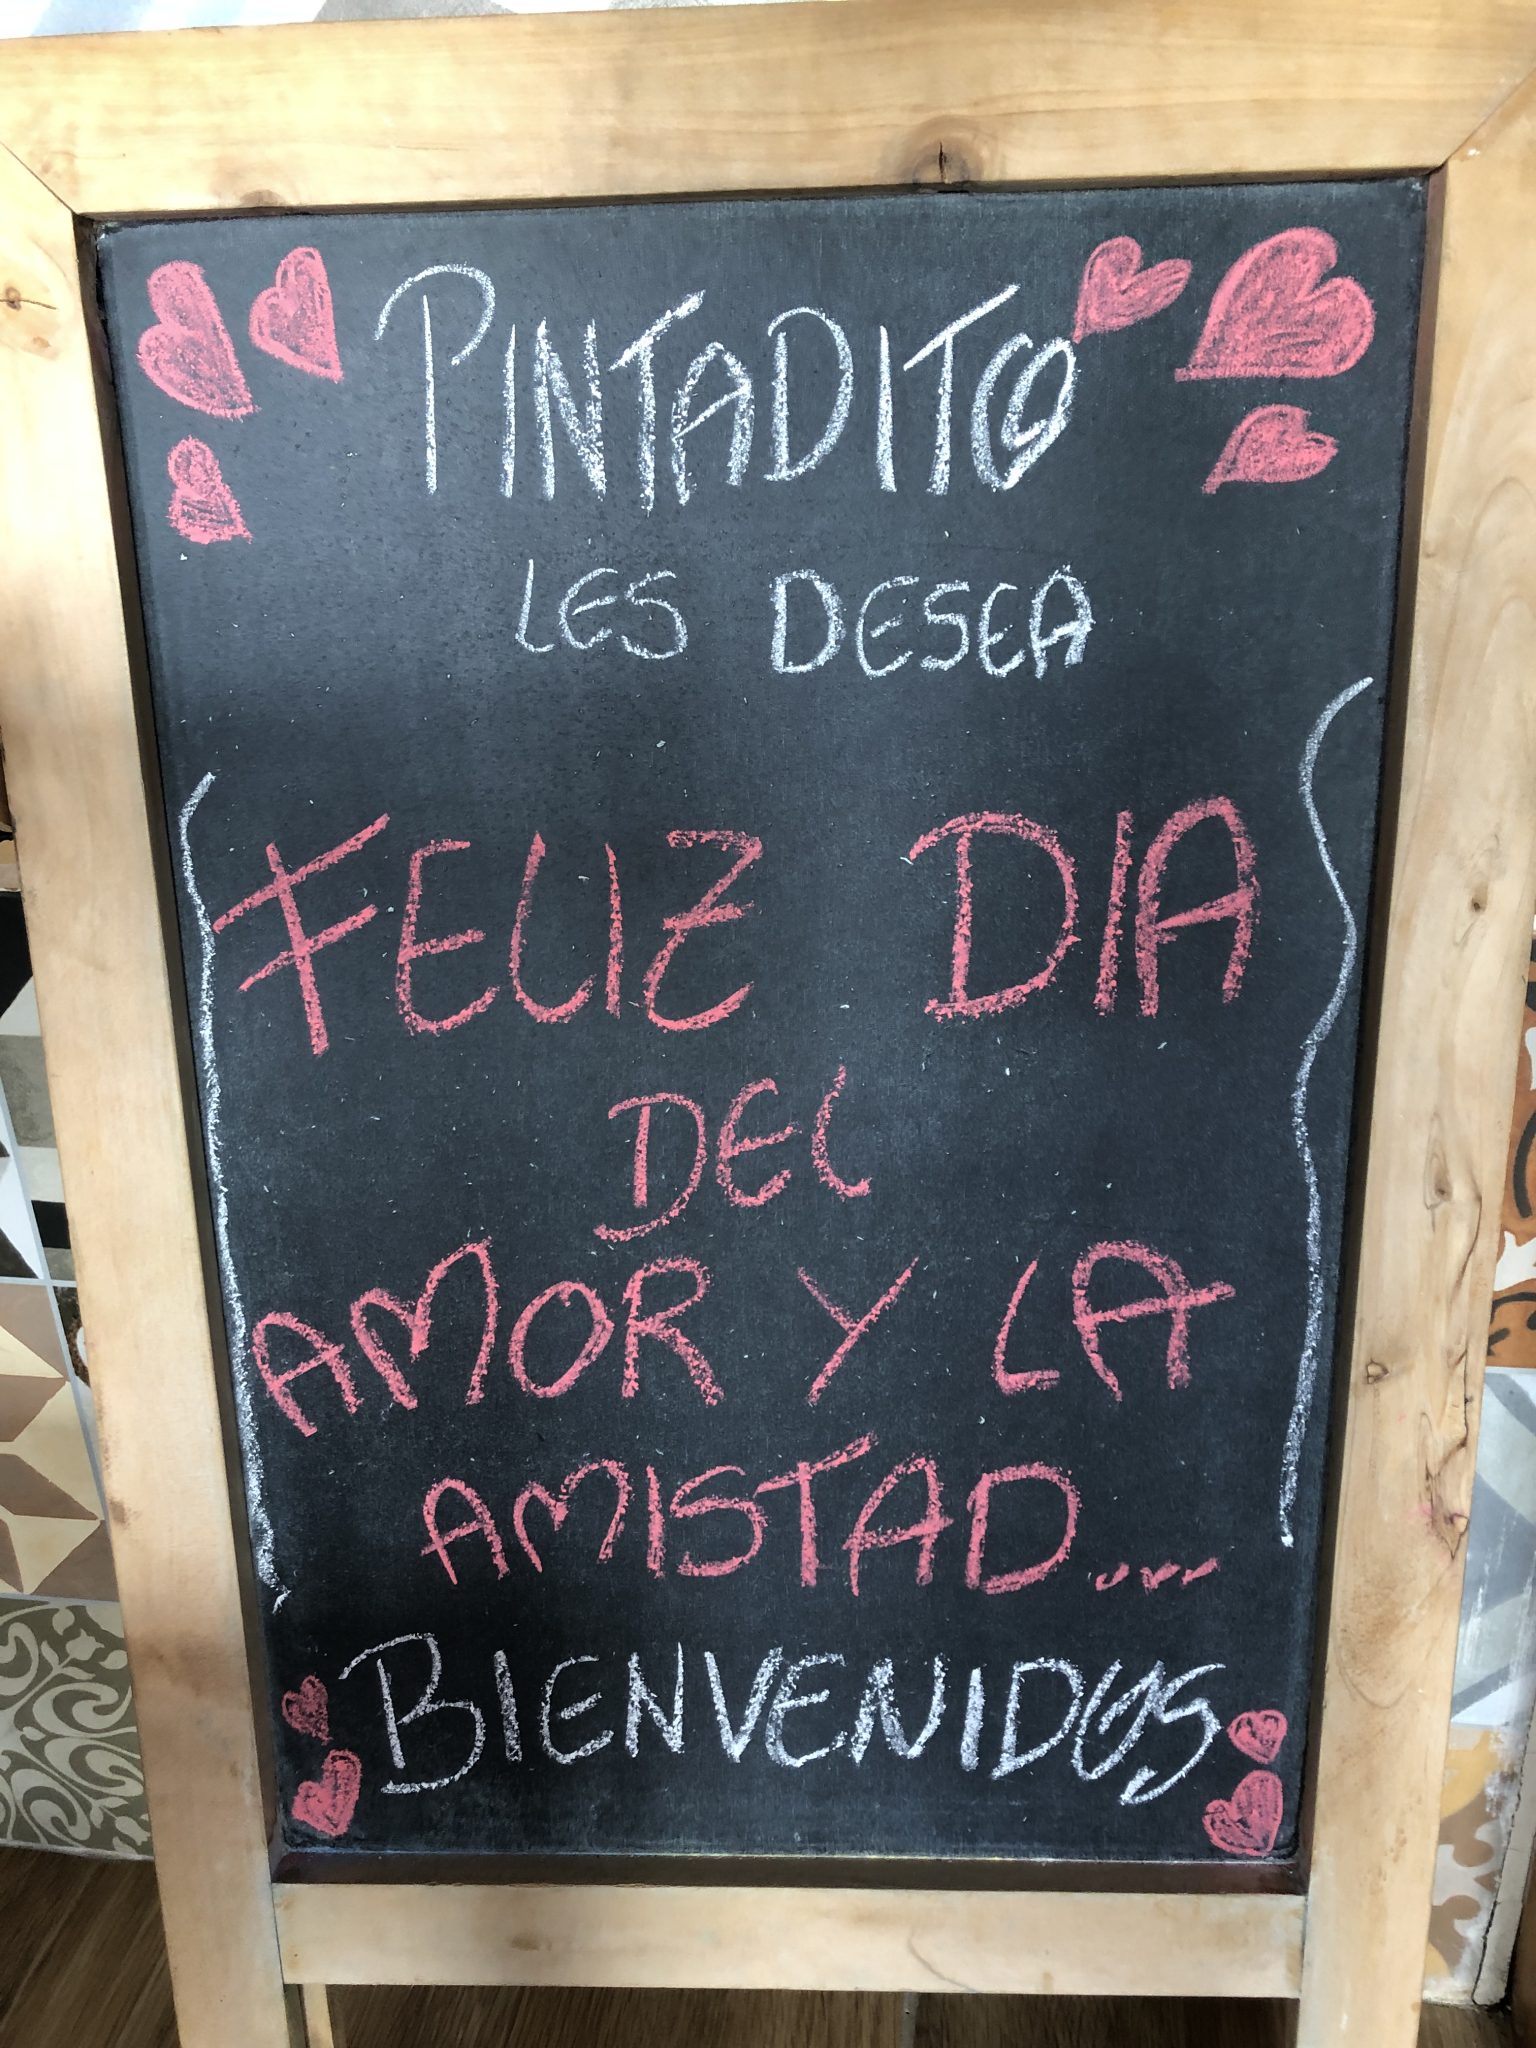 PINTADITO
LES DESEA
FELIZ DIA
DEL
AMOR Y LA
AMISTAD...
BIENVENIDOS